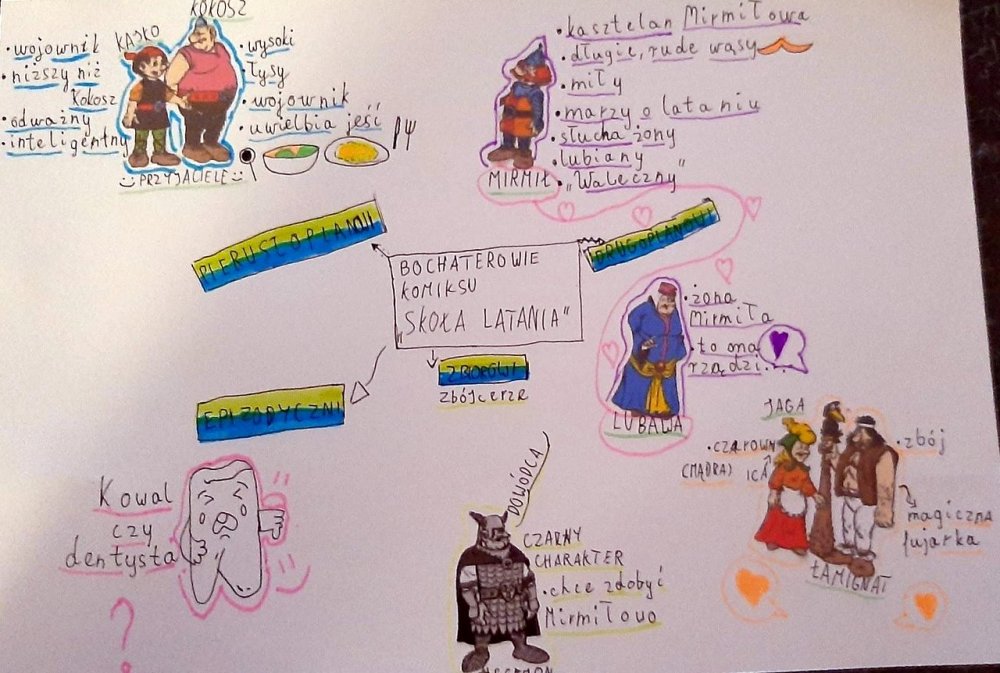 KAJKO
KOKOSZ
• wojownik
• niższy niż
Kokosz
• odważny
• inteligentny
• wysoki
• łysy
• wojownik
• uwielbia jeść
PRZYJACIELE
• kasztelan Mirmiłowa
• długie, rude wąsy
• miły
• marzy o lataniu
• słucha żony
• lubiany
• „Waleczny”
MIRMIŁ
PIERWSZOPLANOWI
DRUGOPLANOWI
BOCHATEROWIE
KOMIKSU
„SKOŁA LATANIA”
ZBIOROWI
zbójcerze
EPIZODYCZNI
• żona
Mirmiła
• to ona
rządzi...
LUBAWA
JAGA
• CZAROWN
ICA
(MĄDRA)
• zbój
magiczna
fujarka
ŁAMIGNAT
Kowal
czy
dentysta
?
DOWÓDCA
CZARNY
CHARAKTER
• chce zdobyć
Mirmiłowo